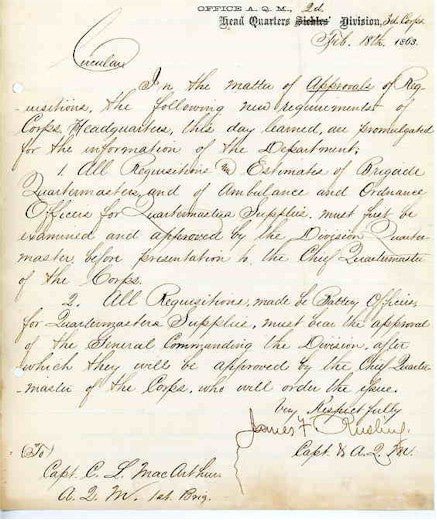 OFFICE A. Q. M., 2d
Head Quarters Sickles' Division, 3d Corps
Feb. 18th, 1863.
Circular
In the matter of Approvals of Req-
uisitions, the following new requirements of
Corps Headquarters, this day learned, are promulgated
for the information of the Department;
1. All Requisitions & Estimates of Brigade
Quartermasters, and of Ambulance and Ordnance
Officers for Quartermasters Supplies, must first be
examined and approved by the Division Quarter
master, before presentation to the Chief Quartermaster
of the Corps.
2. All Requisitions, made by Battery Officers,
for Quartermasters Supplies, must bear the approval
of the General Commanding the Division, after
which they will be approved by the Chief Quarter-
master of the Corps, who will order the issue.
Very Respectfully
James F. Rusling.
Capt. & A. Q. M.
(To)
Capt. C. L. MacArthur
A. Q. M. 1st. Brig.